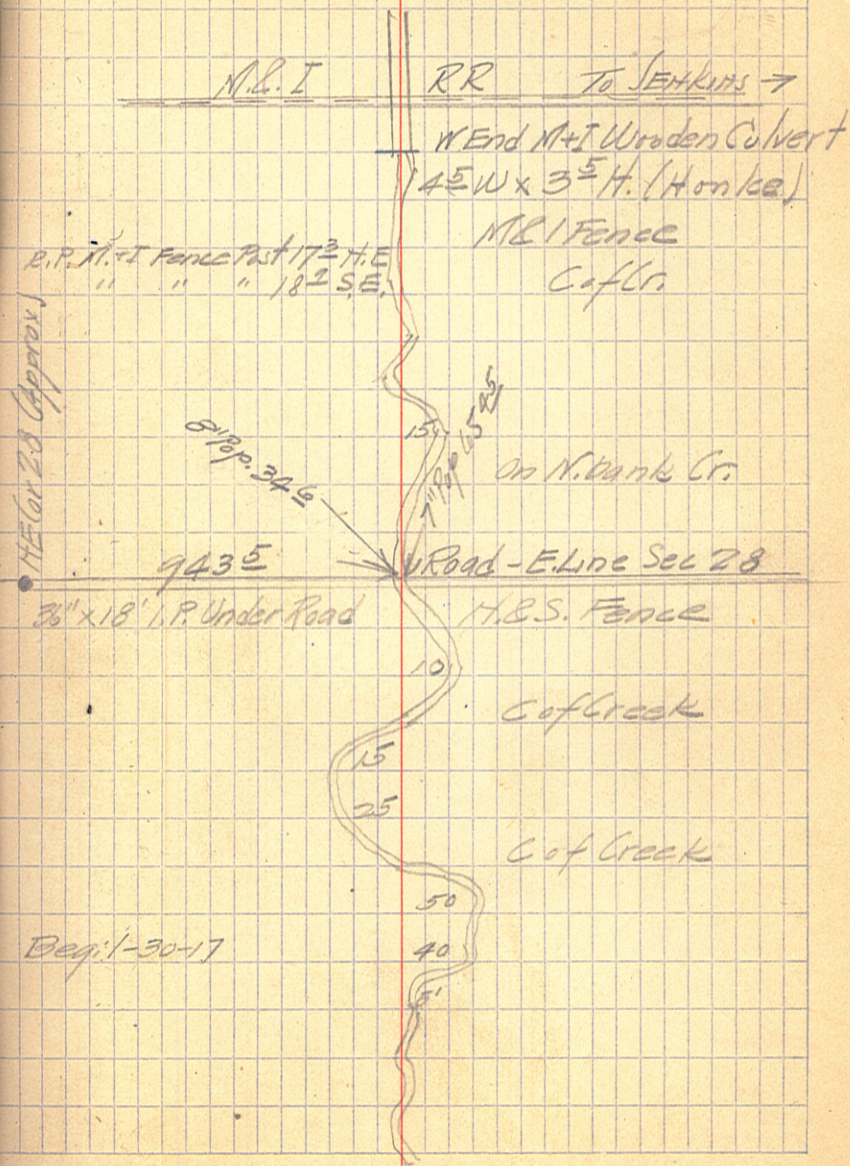 M. & I RR To JENKINS →
W End M+I Wooden Culvert
4 5 W x 3 5 H.
M & I Fence
R.P. M.+I Fence Post 17 3 N.E.
" " " 18 2 S.E.
C of Cr.
NE Cor 28 (Approx)
15
8" Pop. 34 6
7" Pop 65
On N. bank Cr.
943 5 Road - E. Line Sec 28
36" x 18' I.P. Under Road N. & S. Fence
10
C of Creek
15
25
C of Creek
50
Beg. 1-30-17 40
5'